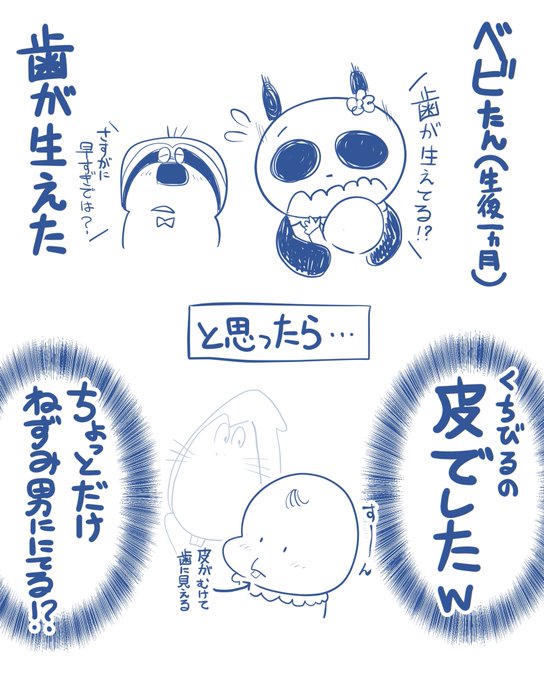 ベビたん(生後一ヵ月)
歯が生えてる!?
さすがに
早すぎでは?
歯が生えた
と思ったら…
くちびるの
皮でしたw
すーん
皮がむけて
歯に見える
ちょっとだけ
ねずみ男ににてる!?